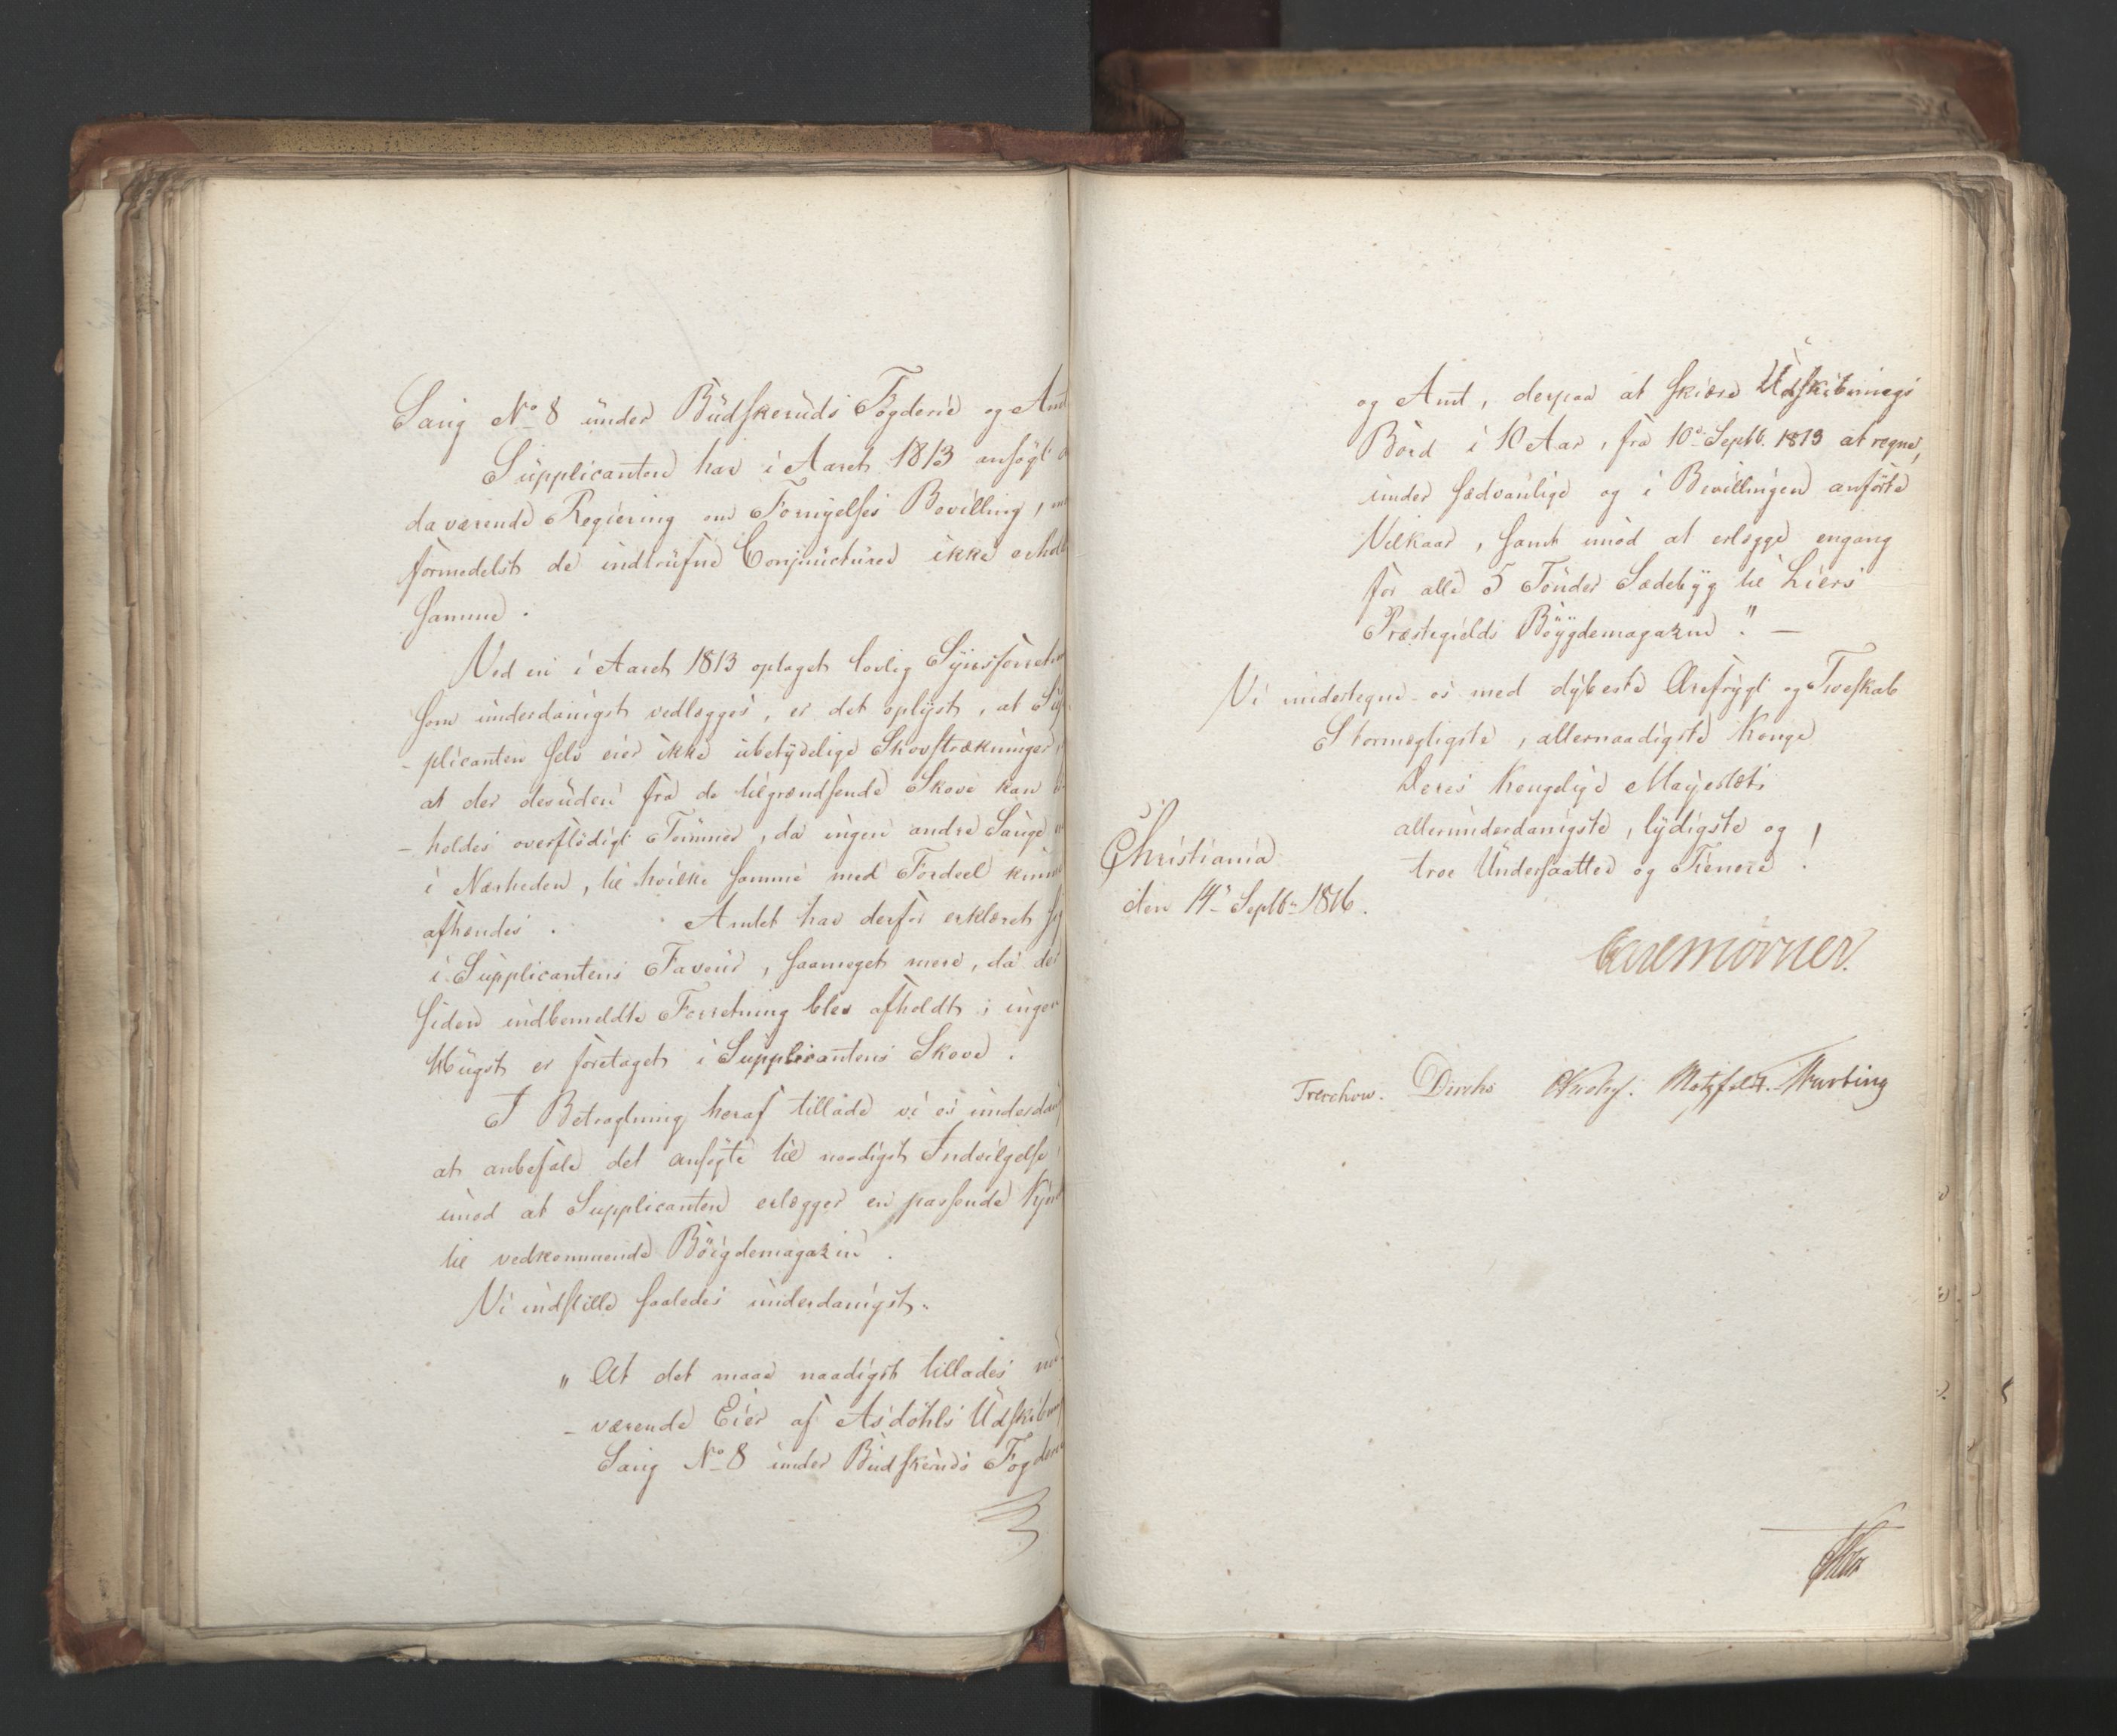 Saug No 8 under Budskeruds Fogderie og Amt
Supplicanten har i Aaret 1813 ansøgt
daværende Regiering om Fornyelses Bevilling,
formedelst de indtrufne Conjuncturer ikke erholdt
samme.
Ved en i Aaret 1813 optaget lovlig Synsforretn
som underdanigst vedlægges, er det oplyst, at Sup
-plicanten selv eier ikke ubetydelige Skovstrækninger,
at der desuden fra de tilgrændsende Skove kan
-holdes overflødigt Tømmer, da ingen andre Sauge
i Nærheden, til hvilke samme med Fordeel kunde
afhændes. Amtet har derfor erklæret sig
i Supplicantens Faveur, saameget mere, da der
siden indbemeldte Forretning blev afholdt, ingen
Hugst er foretaget i Supplicantens Skove.
I Betragtning heraf tillade vi os underdan
at anbefale det ansøgte til naadigst Indvilgelse
imod at Supplicanten erlægger en passende
til vedkommende Bøigdemagazin.
Vi indstille saaledes underdanigst.
„ At det maae naadigst tillades nu
- værende Eier af Asdøhls Udskibnings
Saug No 8 under Budskeruds Fogderie
og Amt, derpaa at skiære Udskibnings
Bord i 10 Aar, fra 10de Septb. 1813 at regne,
under sædvanlige og i Bevillingen anførte
Vilkaar, samt imod at erlægge engang
for alle 5 Tønder Sædebyg til Liers
Præstegields Bøygdemagazin." —
Vi undertegne os med dybeste Ærefrygt og Troeskab
Stormægtigste, allernaadigste Konge
Deres Kongelige Majestæts
allerunderdanigste, lydigste og
troe Undersaatter og Tienere!
Christiania
den 14de Septbr 1816.
Carl Mörner.
Treschow. Diriks Krohg. Motzfeldt.